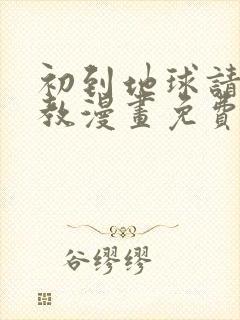 初到地球請
教漫畫免費
谷缪缪